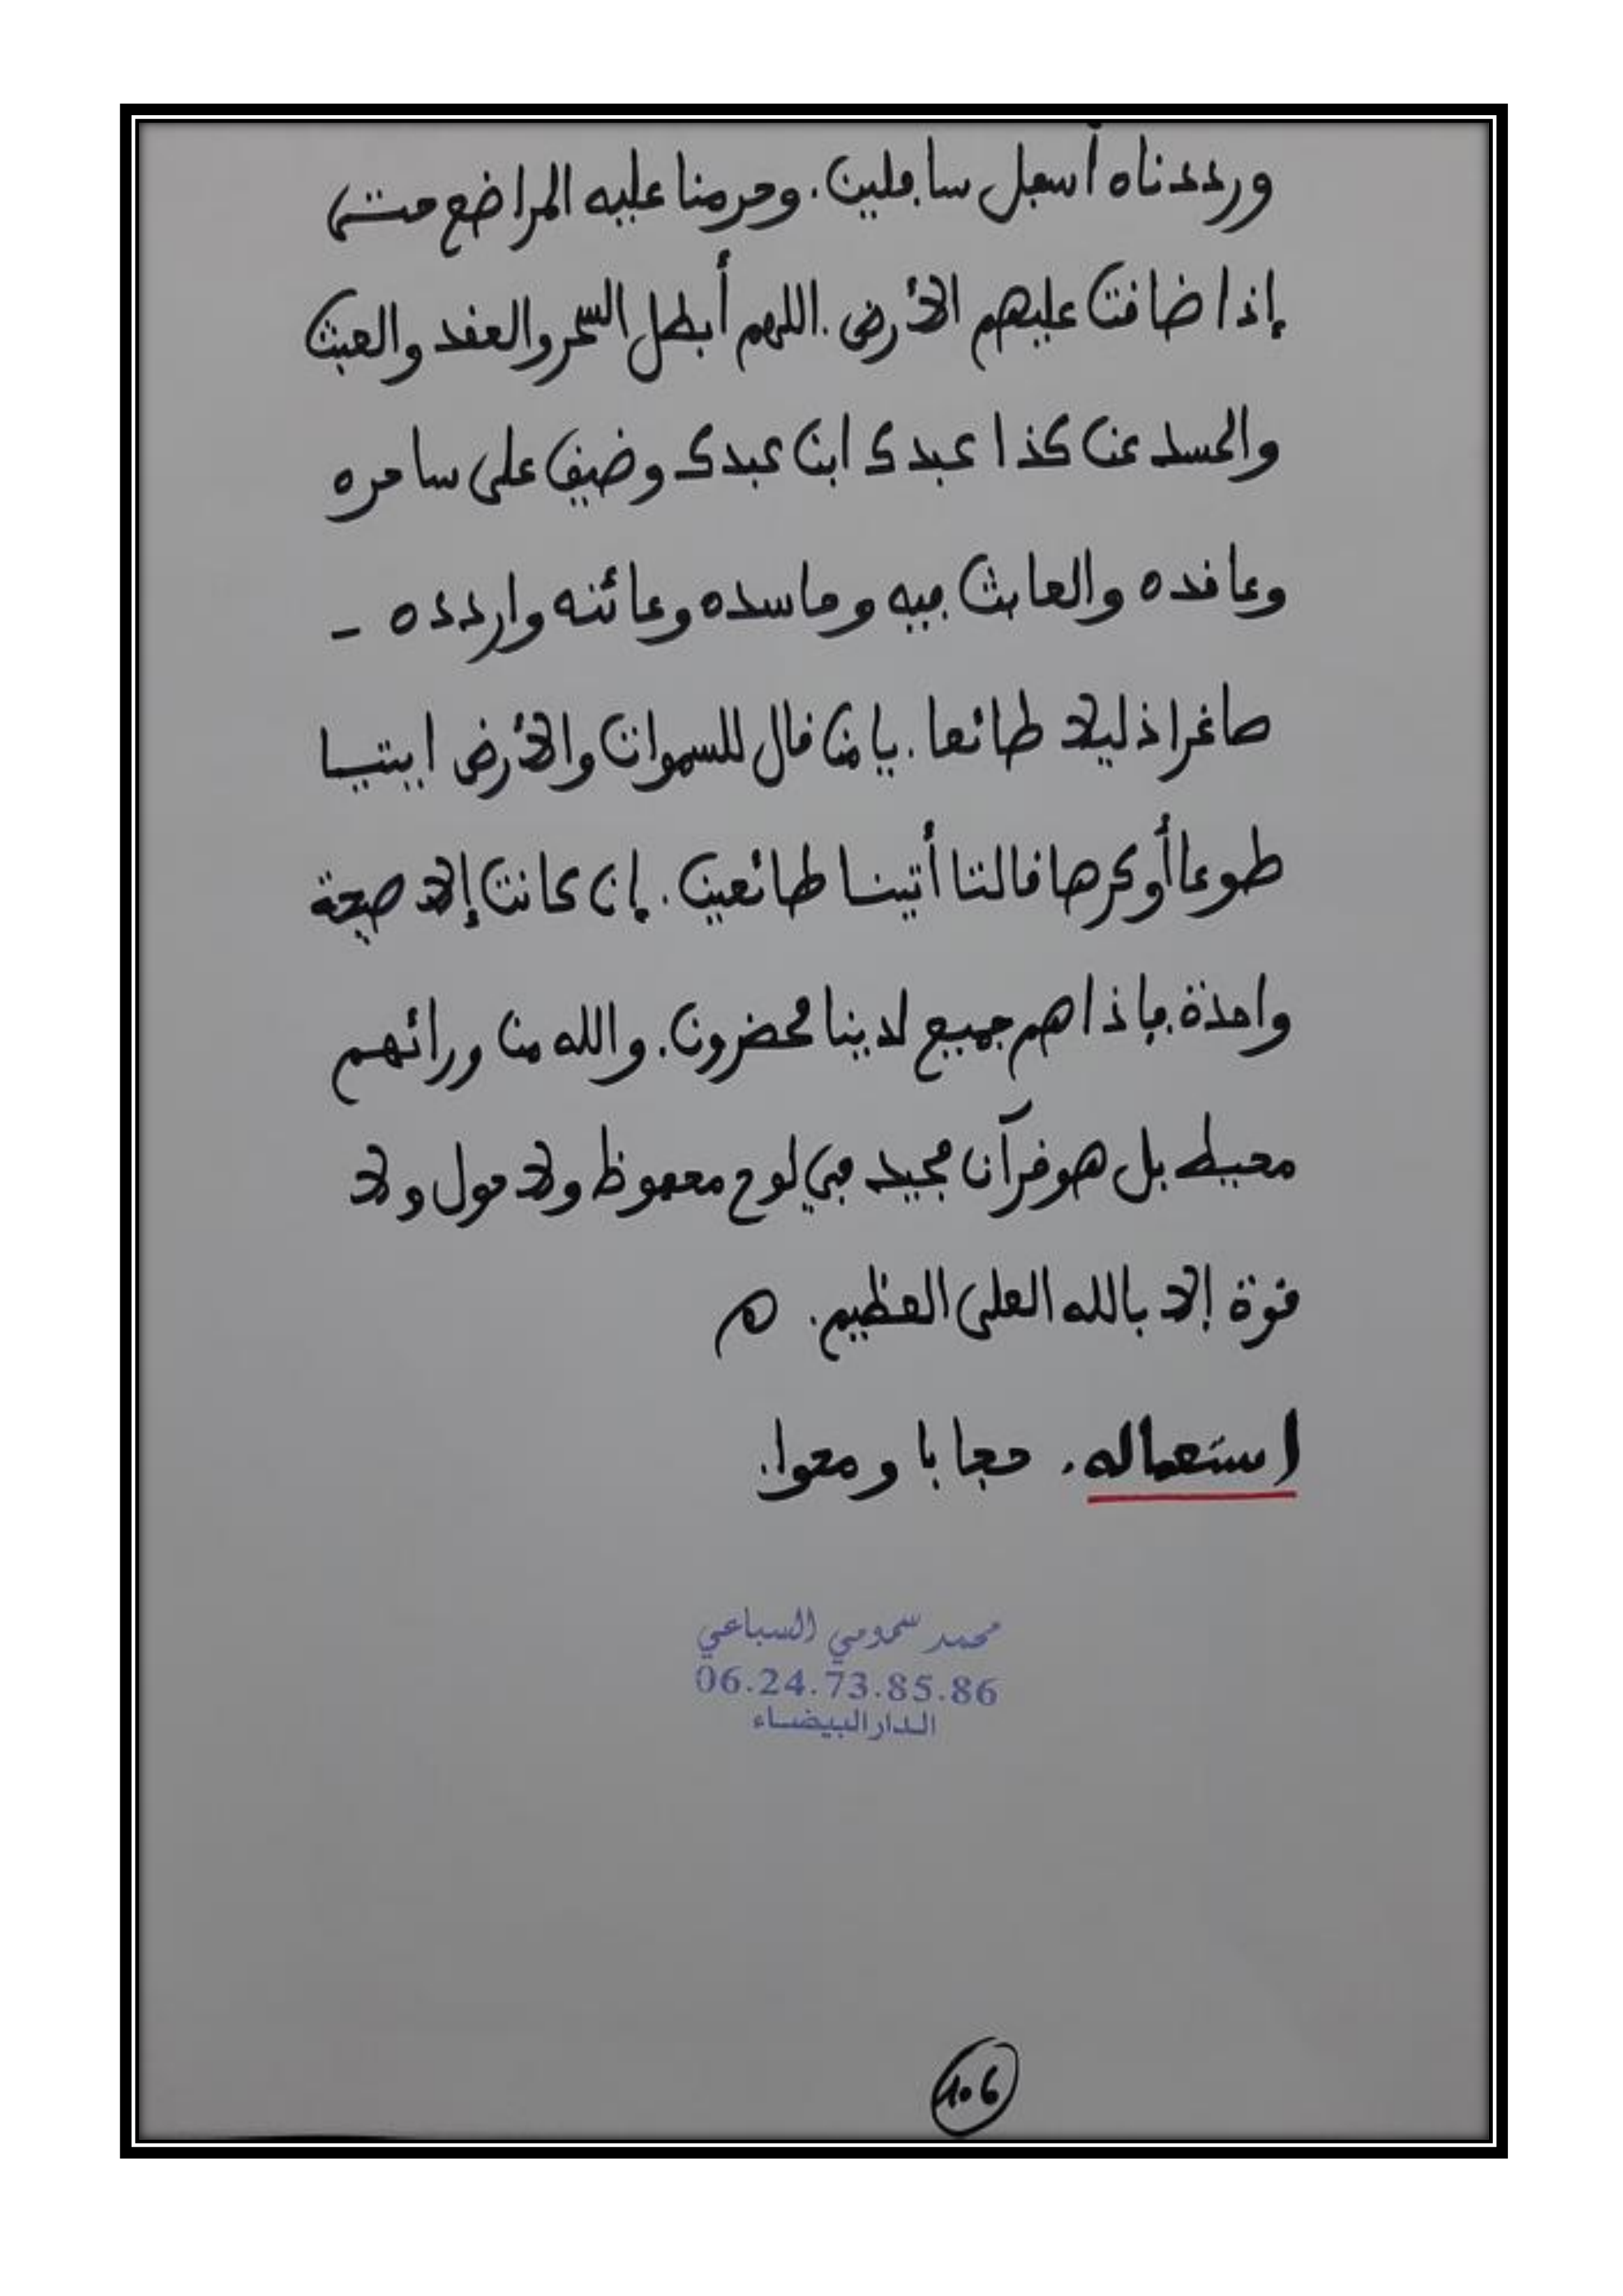 ورددناه أسفل سافلين. وحرمنا عليه المراضع حتى
إذا ضاقت عليهم الأرض. اللهم أبطل السحر والعقد والعبث
والحسد عن كذا عبدك ابن عبدك وضيق على ساحره
وعاقده والعابث فيه وحاسده وعائنه واردده -
صاغرا ذليلا طائعا. يا من قال للسموات والأرض ايتيا
طوعا أو كرها قالتا أتينا طائعين. إن كانت إلا صيحة
واحدة فإذا هم جميع لدينا محضرون. والله من ورائهم
محيط بل هو قرآن مجيد في لوح محفوظ ولا حول ولا
قوة إلا بالله العلى العظيم. ه
استعماله. حجابا ومحوا.
محمد سمومي السباعي
06.24.73.85.86
الدار البيضاء
106